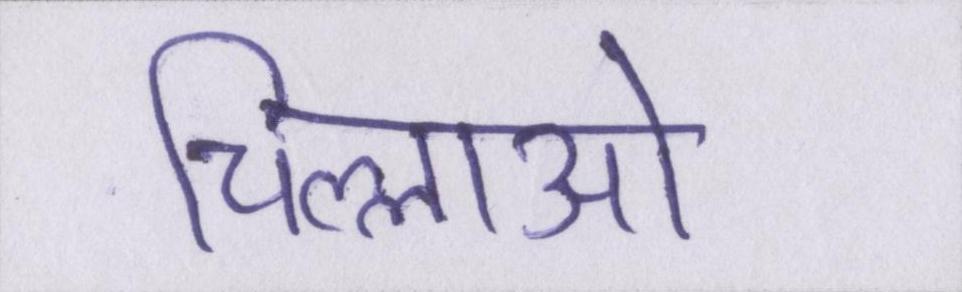 चिल्लाओ